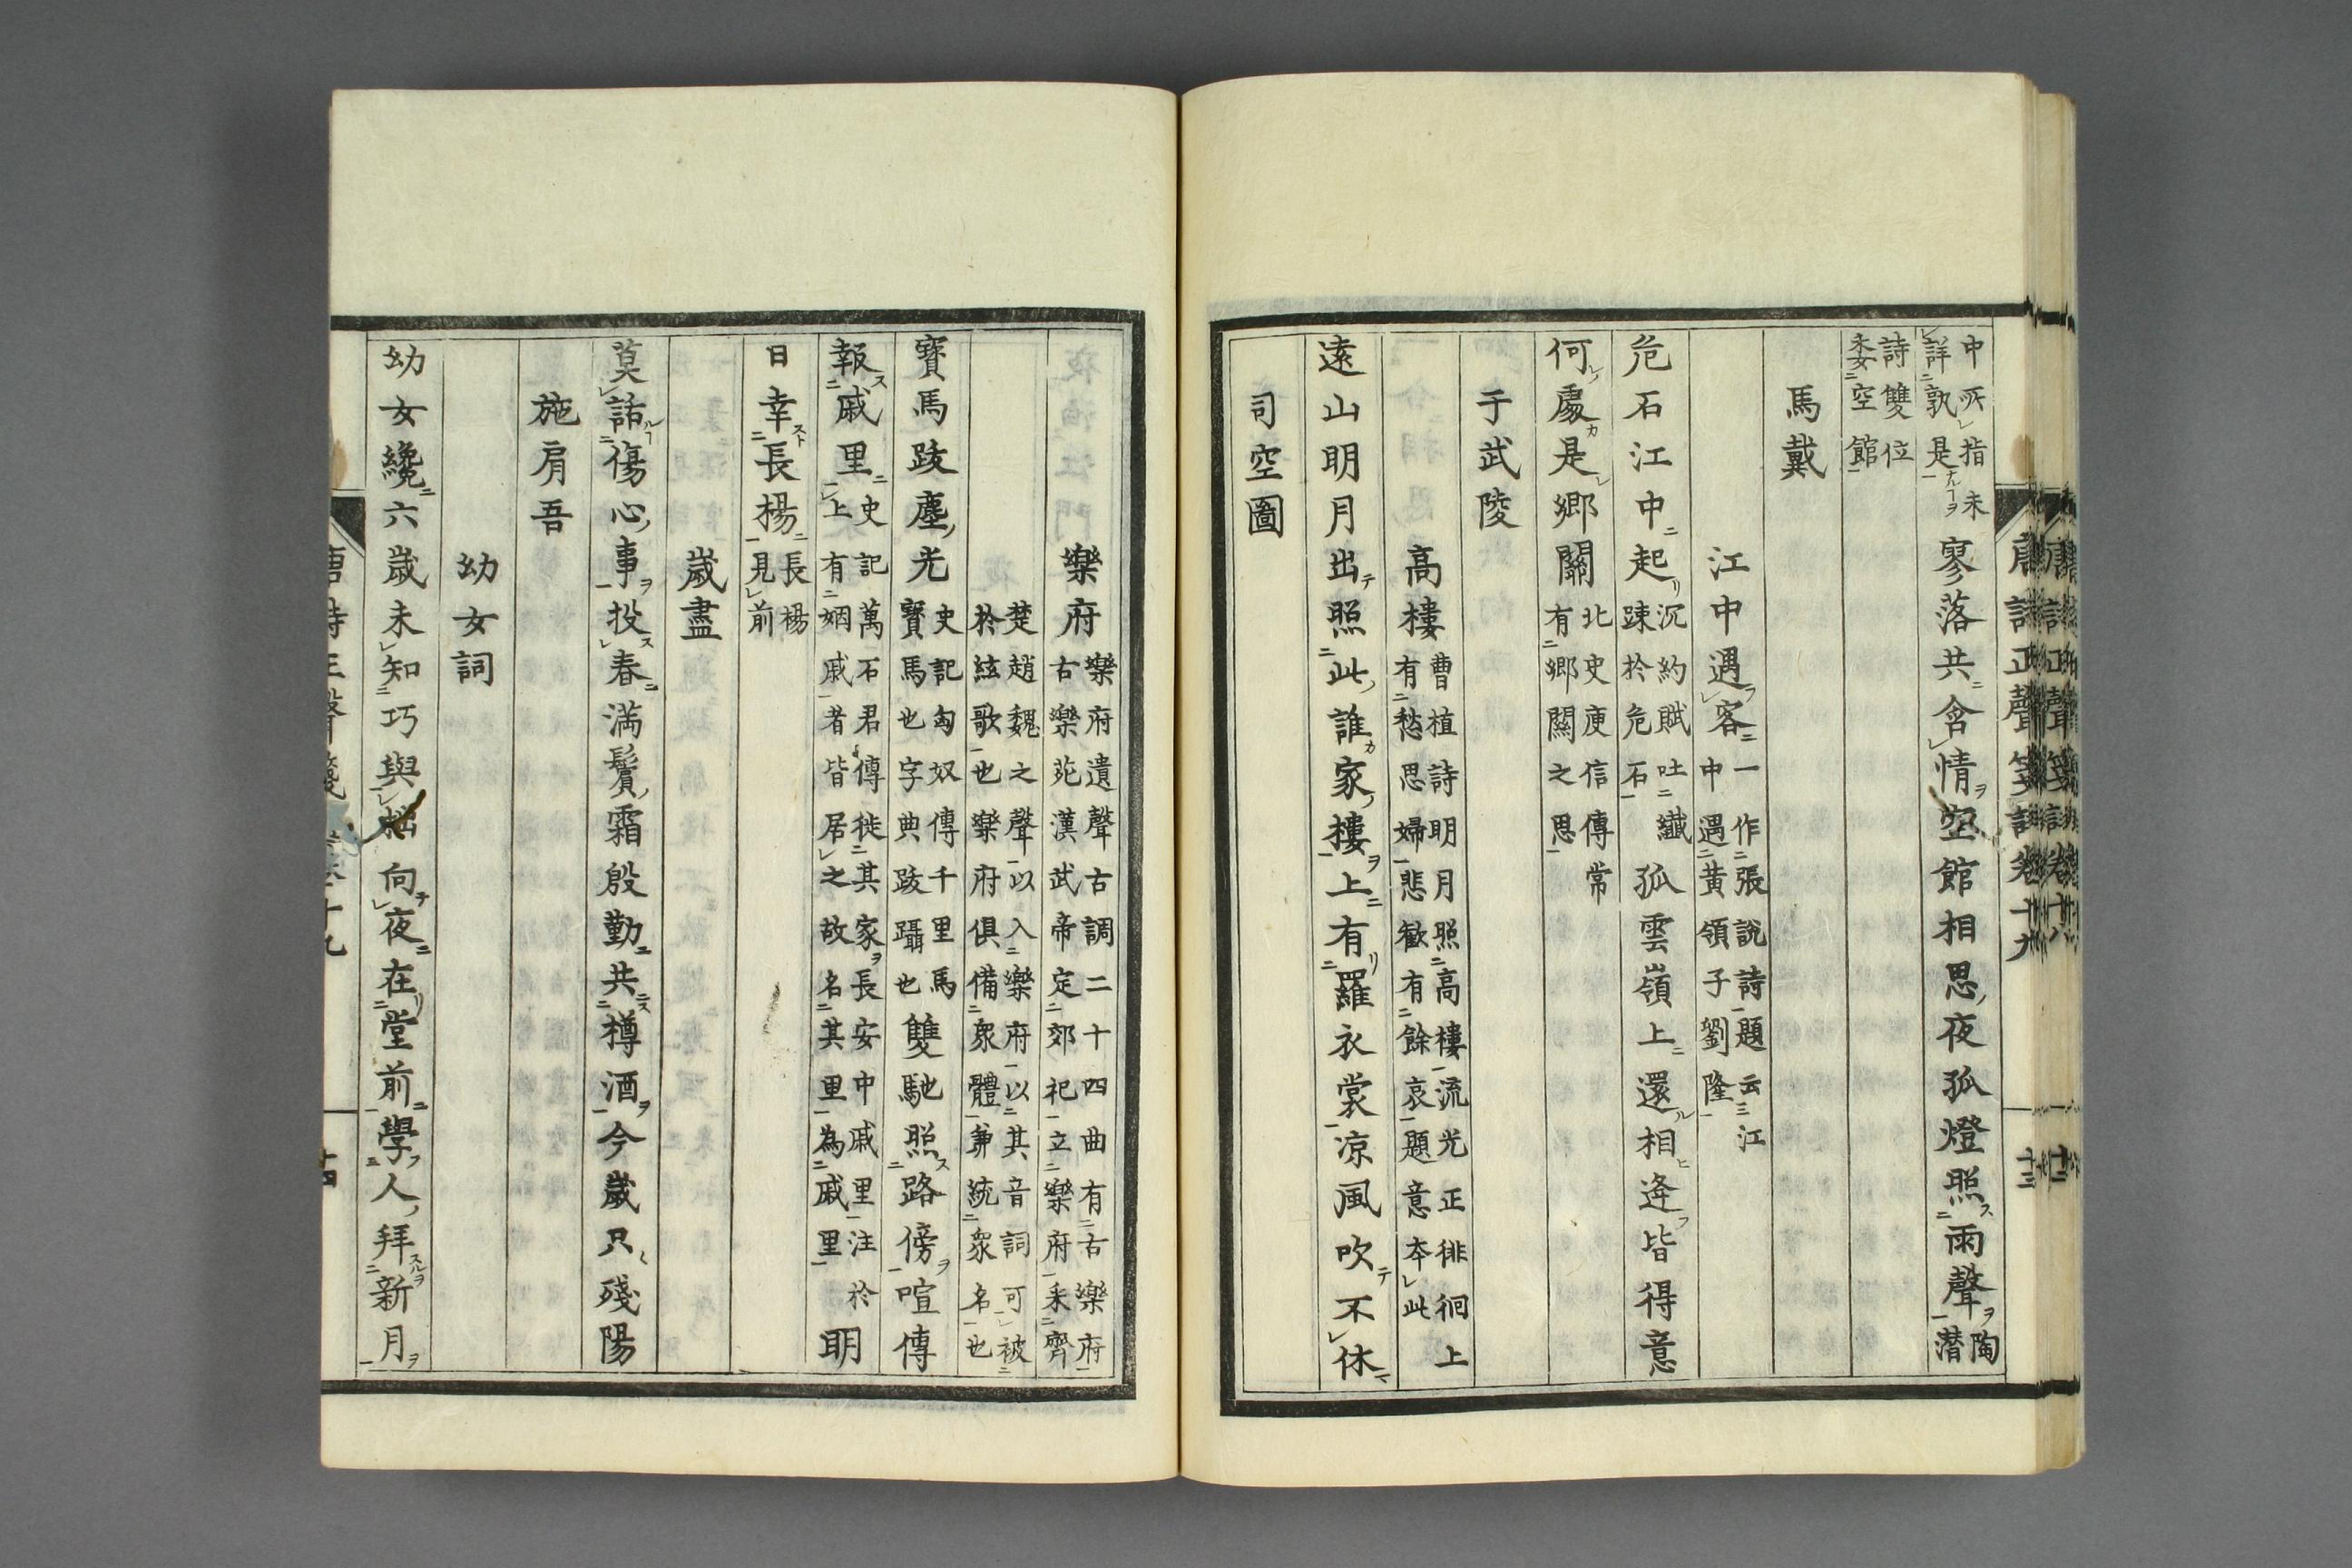 唐詩正聲箋註卷十九 十三
中所指未
詳孰是
寥落共含情空館相思夜孤燈照雨聲
陶
潜
詩雙位
委空館
馬戴
江中遇客
一作張說詩題云江
中遇黄領子劉隆
危石江中起
沉約賦吐纖
踈於危石
孤雲嶺上還相逄皆得意
何處是鄉關
北史庾信傳常
有鄉關之思
于武陵
高樓
曹植詩明月照高樓流光正徘徊上
有愁思婦悲歎有餘哀題意本此
遠山明月出照此誰家樓上有羅衣裳凉風吹不休
司空圖
樂府
樂府遺聲古調二十四曲有古樂府
古樂苑漢武帝定郊祀立樂府采齊
楚趙魏之聲以入樂府以其音詞可被
於絃歌也樂府俱備衆體兼統衆名也
寶馬跋塵光
史記匈奴傳千里馬
寶馬也字典跋躡也
雙馳照路傍喧傳
報戚里
史記萬石君傳徙其家長安中戚里注於
上有姻戚者皆居之故名其里為戚里
明
日幸長楊
長楊
見前
歲盡
莫話傷心事投春滿鬢霜殷勤共樽酒今歲只殘陽
施肩吾
幼女詞
幼女纔六歲未知巧與拙向夜在堂前學人拜新月